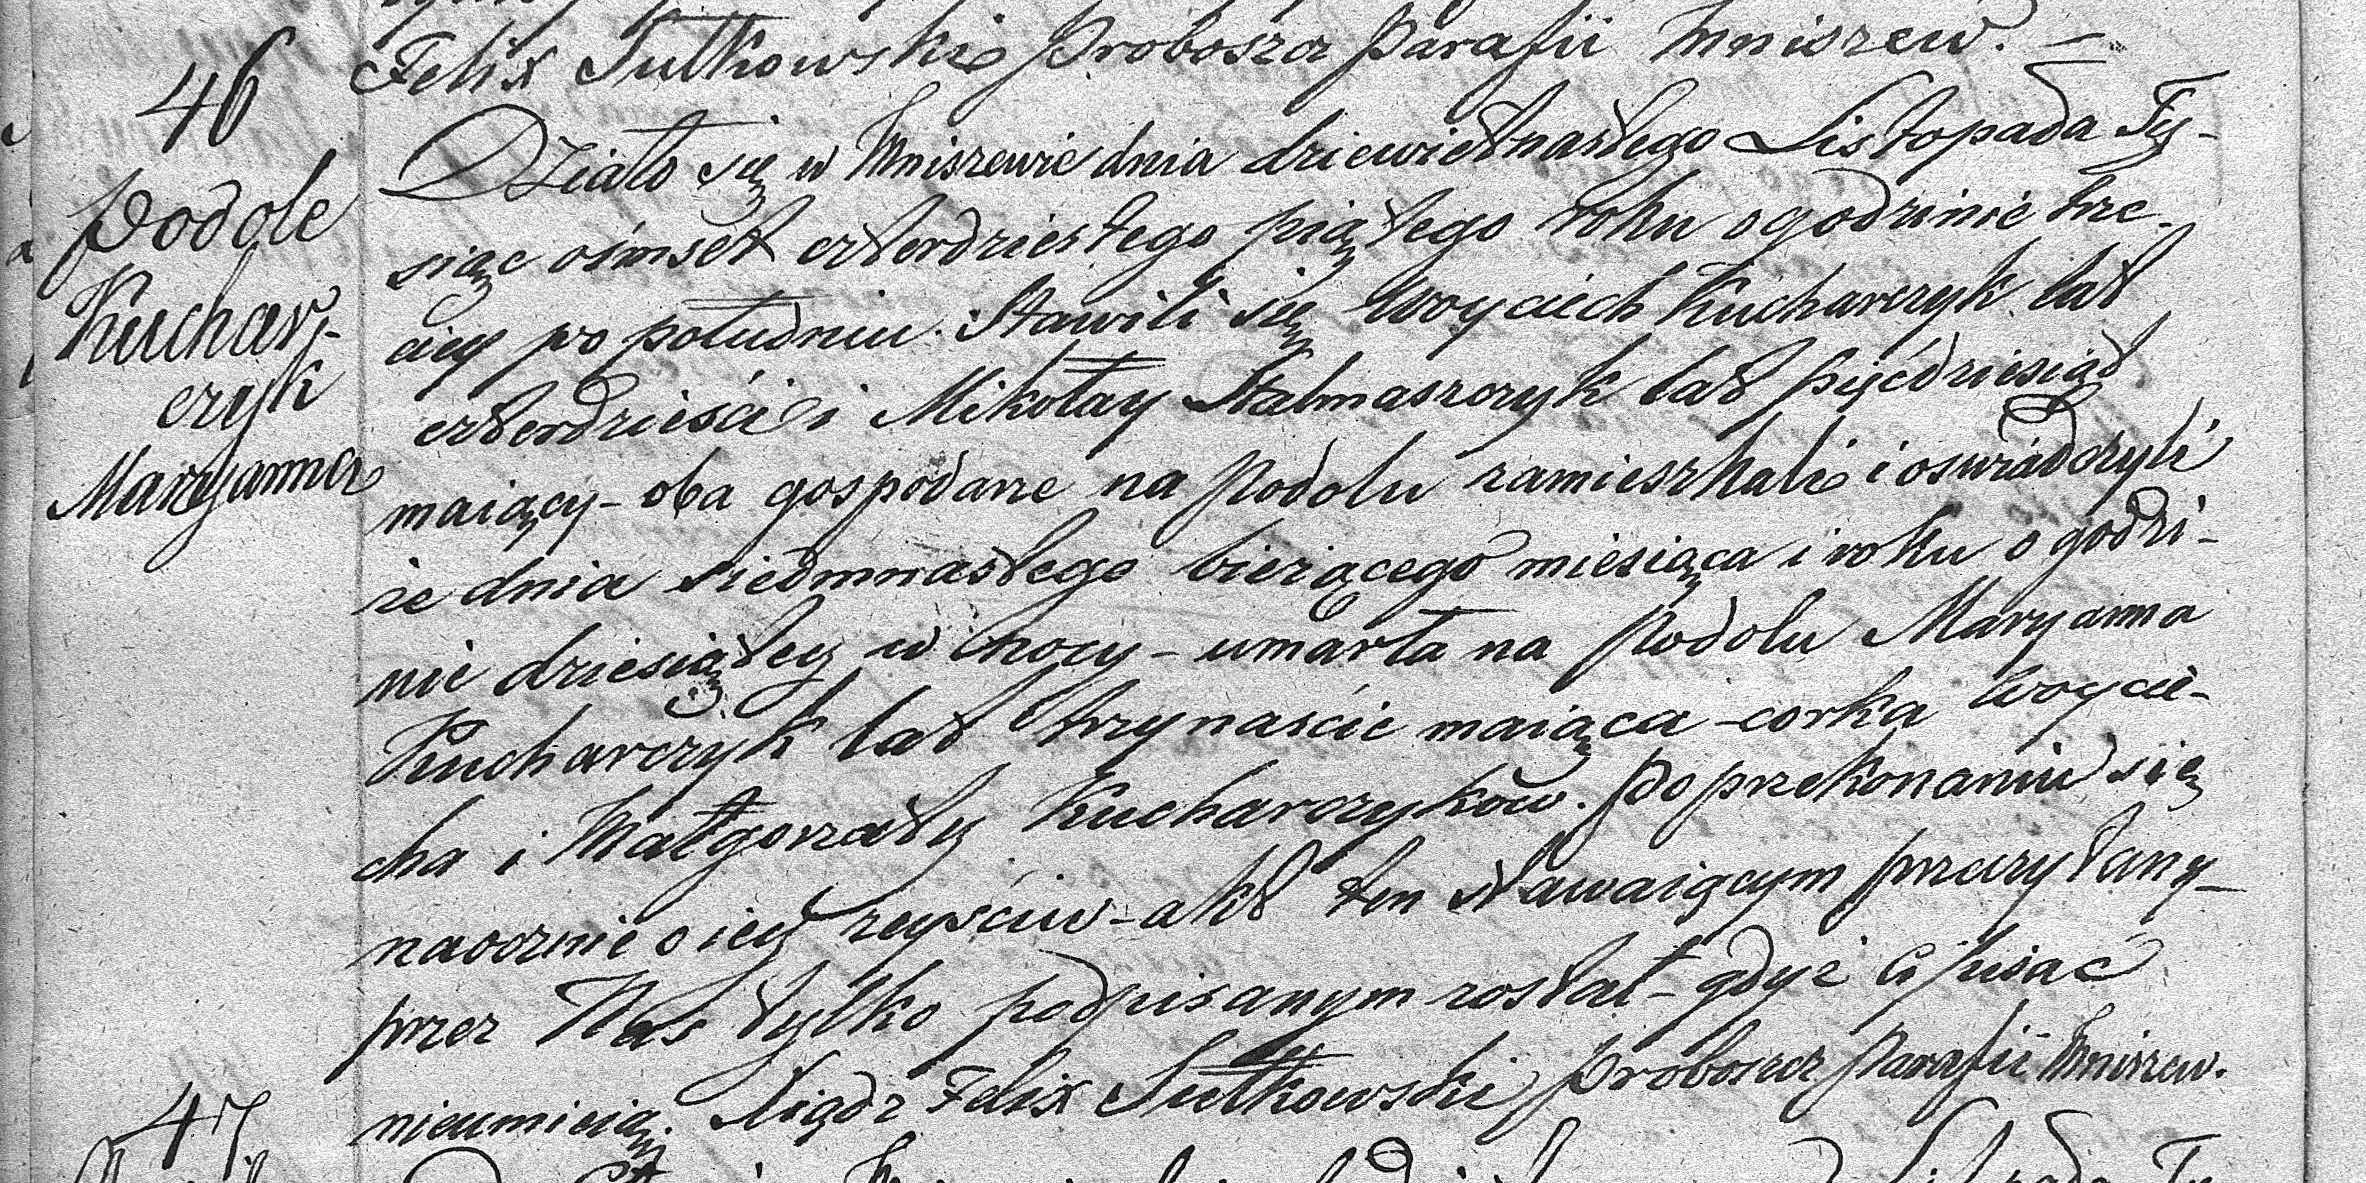 Felix Sutkowski Proboszcz Parafii Mniszew. —
46
Działo się w Mniszewie dnia dziewiętnastego Listopada Ty-
Podole
siąc ośmset czterdziestego piątego roku o godzinie trze-
Kuchar-
ciey po południu. Stawili się Woyciech Kucharczyk lat
czyk
czterdzieści i Mikołay Stalmaszczyk lat pięćdziesiąt
Maryanna
maiący - oba gospodarze na Podolu zamieszkali i oswiadczyli
że dnia siedmnastego bieżącego miesiąca i roku o godzi-
nie dziesiątey w nocy - umarła na Podolu Maryanna
Kucharczyk lat trzynaście maiąca - corka Woycie-
cha i Małgorzaty Kucharczyków. Po przekonaniu się
naocznie o iey zeyściu - akt ten stawaiącym przeczytany
przez Nas tylko podpisanym został - gdyż Ci pisać
nieumieią. Xiądz Felix Sutkowski Proboszcz Parafii Mniszew.
47